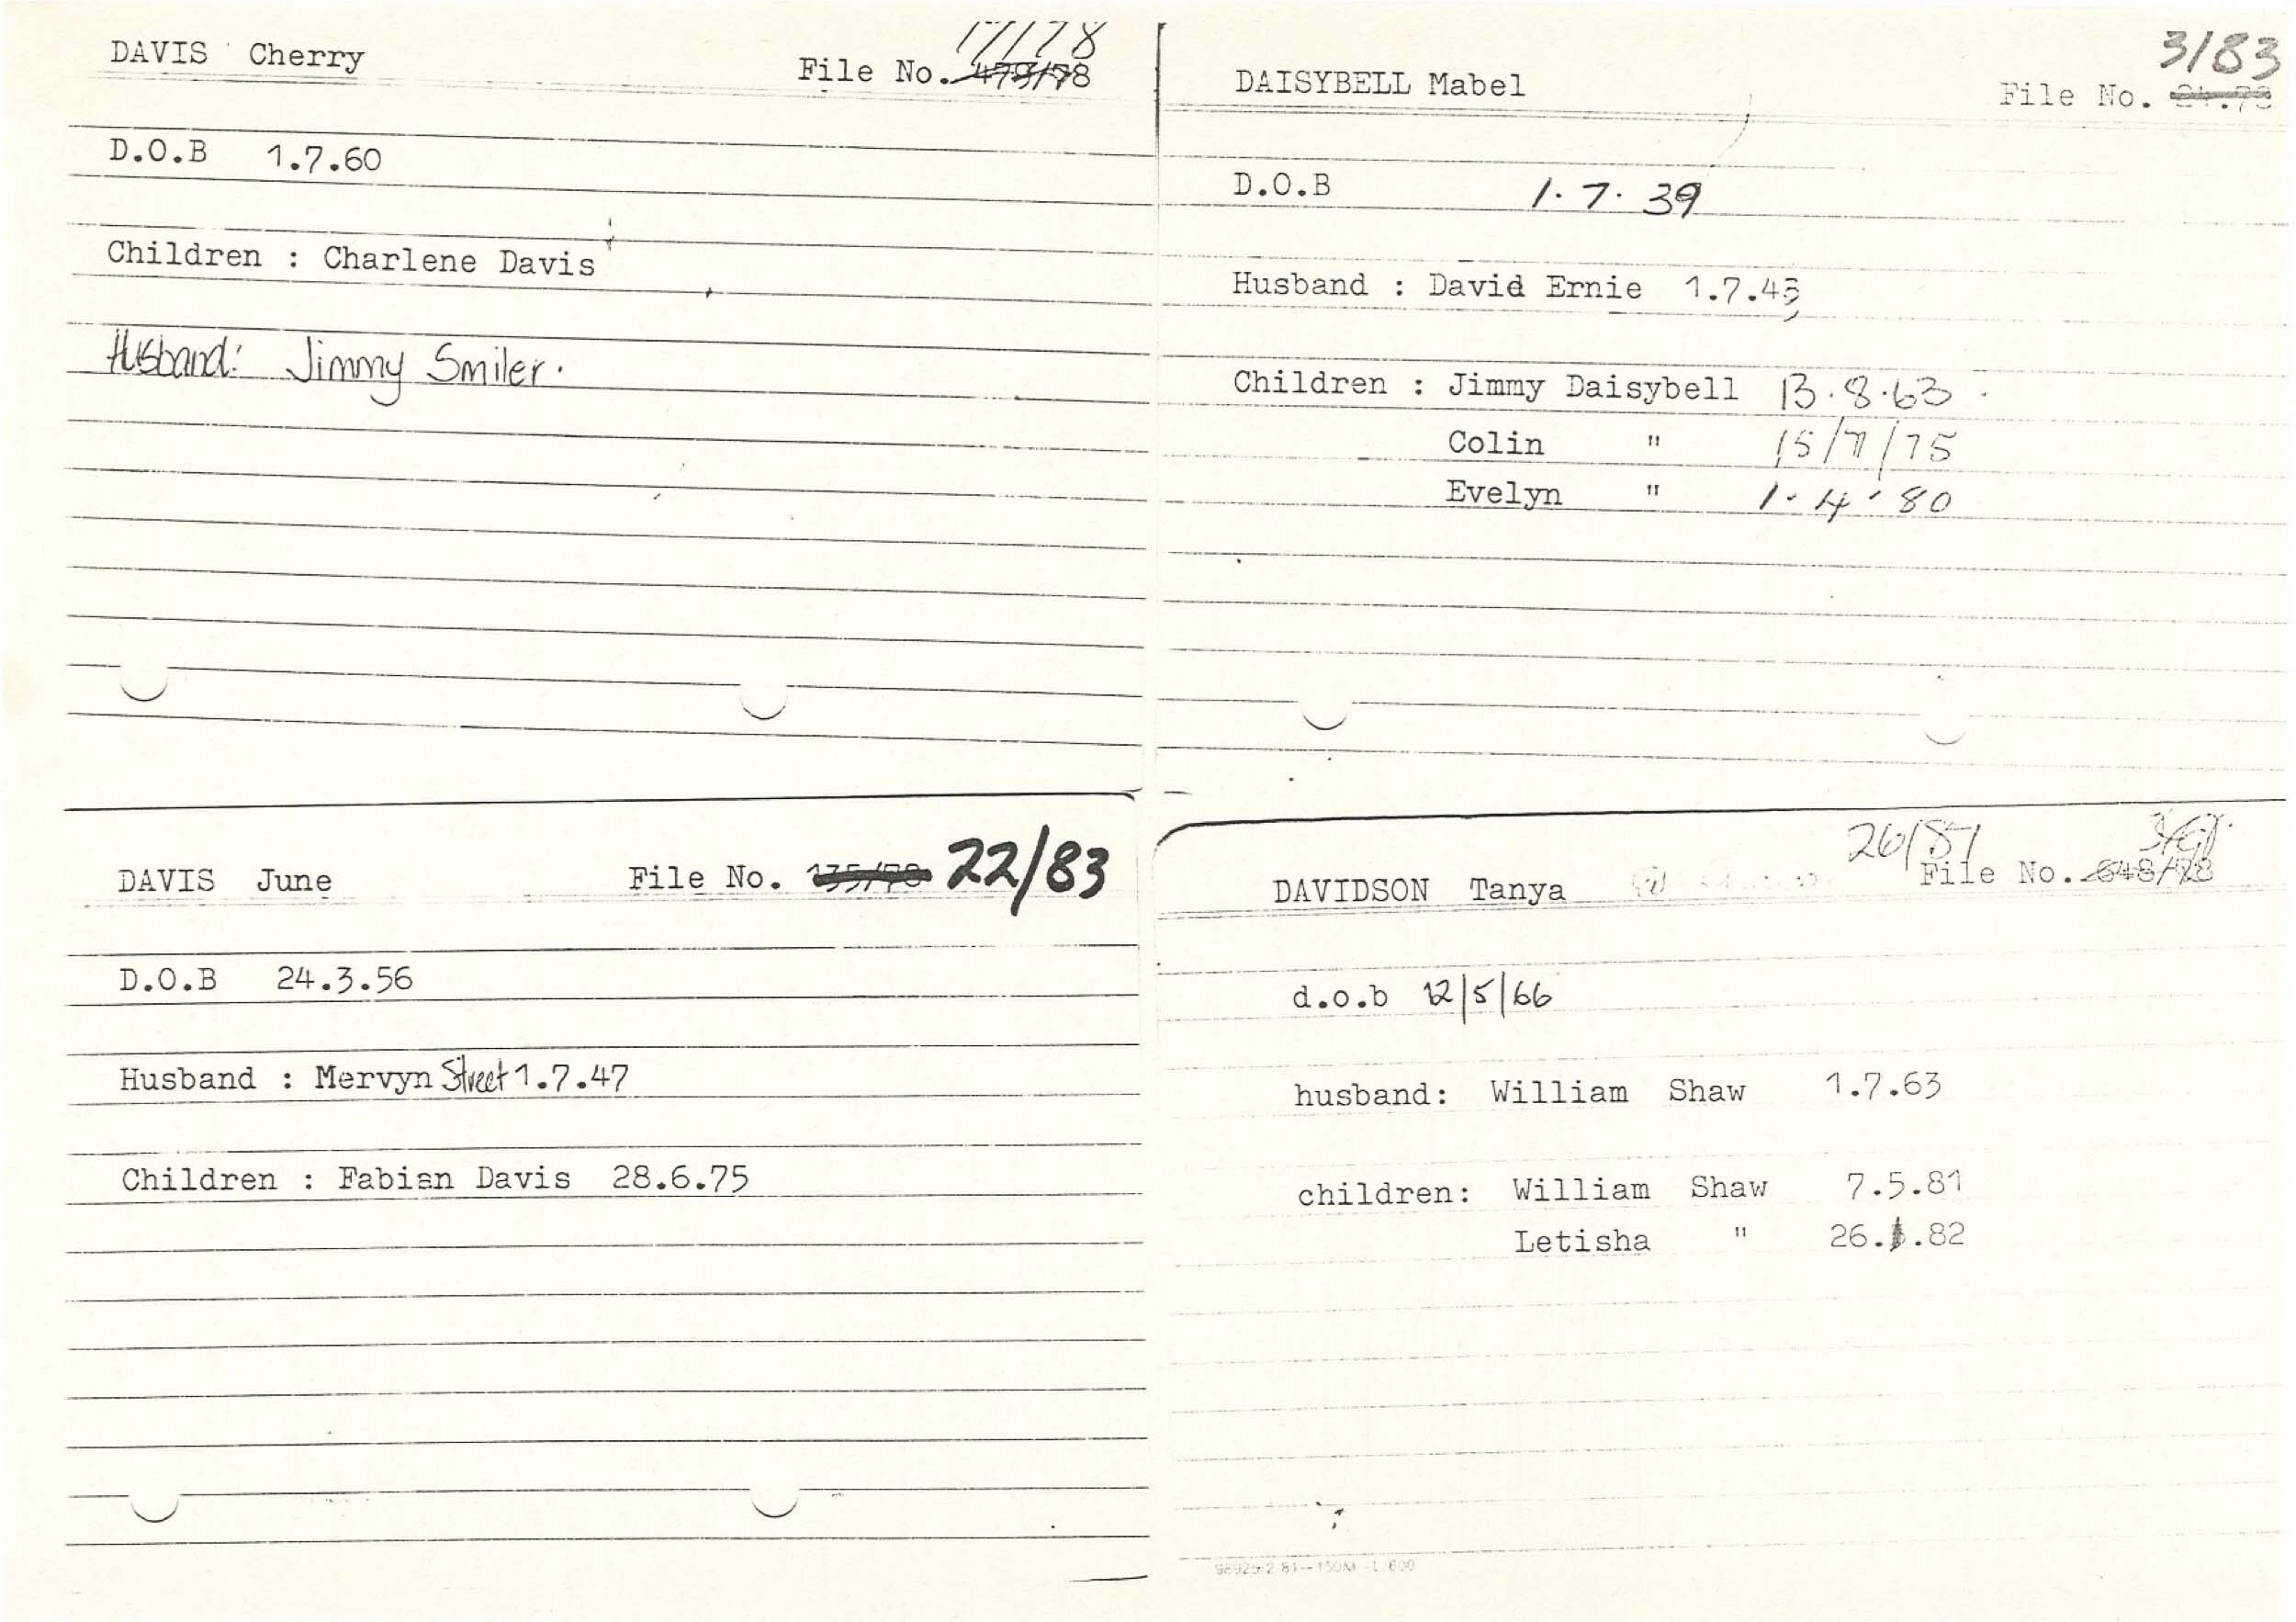 DAVIS Cherry
17/78
File No. 479/78
D.O.B 1.7.60
Children : Charlene Davis
Husband: Jimmy Smiler.
DAISYBELL Mabel
3/83
File No.
D.O.B 1.7.39
Husband : David Ernie 1.7.43
Children : Jimmy Daisybell 13.8.63
Colin " 15/7/75
Evelyn " 1.4.80
DAVIS June File No. 135/78 22/83
D.O.B 24.3.56
Husband : Mervyn Street 1.7.47
Children : Fabian Davis 28.6.75
26/87
DAVIDSON Tanya File No. 648/78
d.o.b 12/5/66
husband: William Shaw 1.7.63
children: William Shaw 7.5.81
Letisha " 26. .82